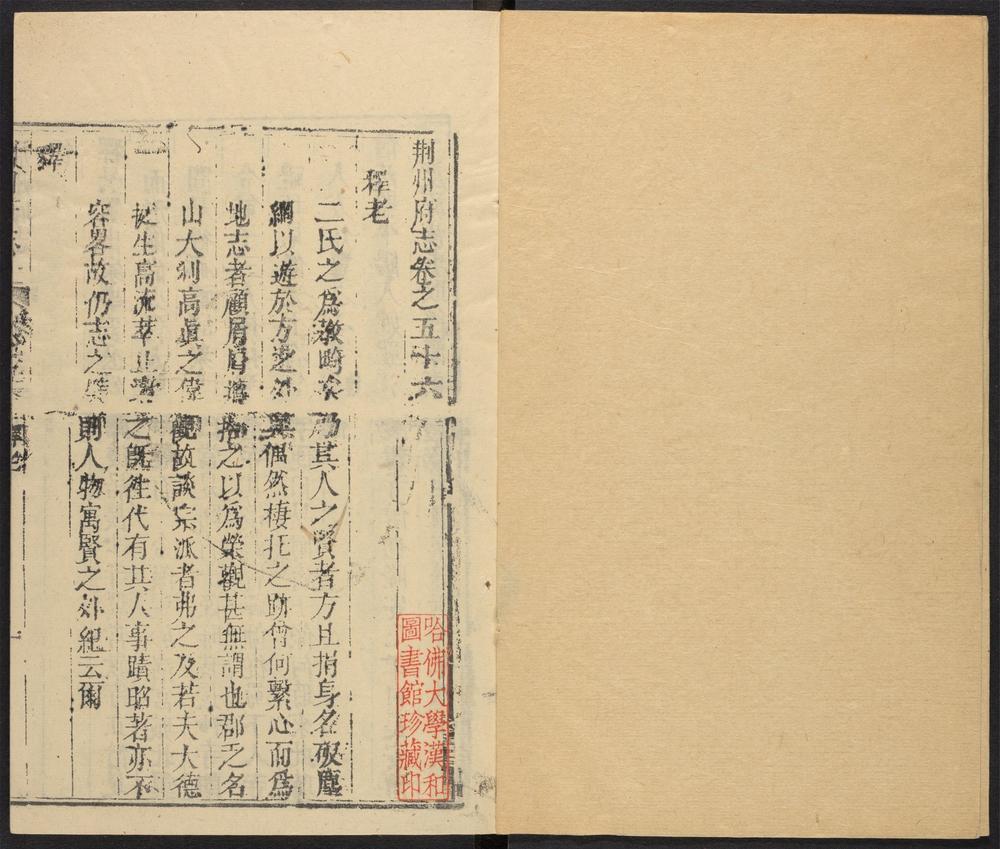 荆州府志卷之五十六
釋老
二氏之為教畸矣乃其人之賢者方且捐身名破塵
網以遊於方之外異偶然棲托之跡曾何繫心而為
地志者顧屑屑摭拾之以為榮觀甚無謂也郡之名
山大刹高真之偉觀故談宗派者弗之及若夫大德
挺生高流萃止之既往代有其人事蹟昭著亦不
容畧故仍志之則人物寓賢之外紀云爾
哈佛大學漢和
圖書館珍藏印